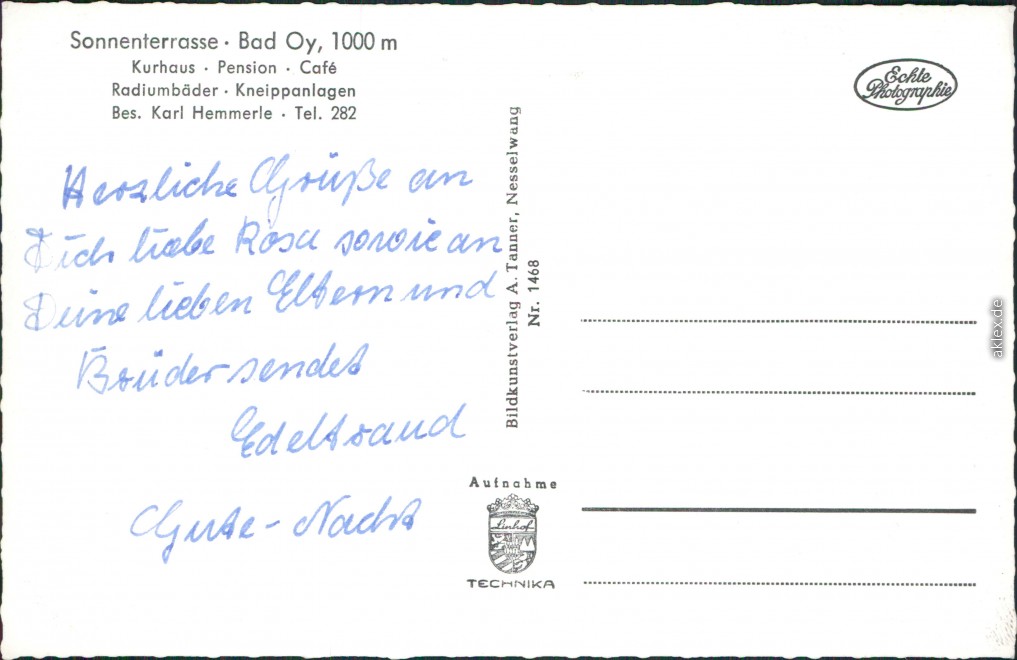 Sonnenterrasse · Bad Oy, 1000 m
Kurhaus · Pension · Café
Radiumbäder · Kneippanlagen
Bes. Karl Hemmerle · Tel. 282
Herzliche Grüße an
Dich liebe Rosa sowie an
Deine lieben Eltern und
Brüder sendet
Edeltraud
Gute-Nacht
Bildkunstverlag A. Tanner, Nesselwang
Nr. 1468
Echte
Photographie
Aufnahme
Linhof
TECHNIKA
aklex.de